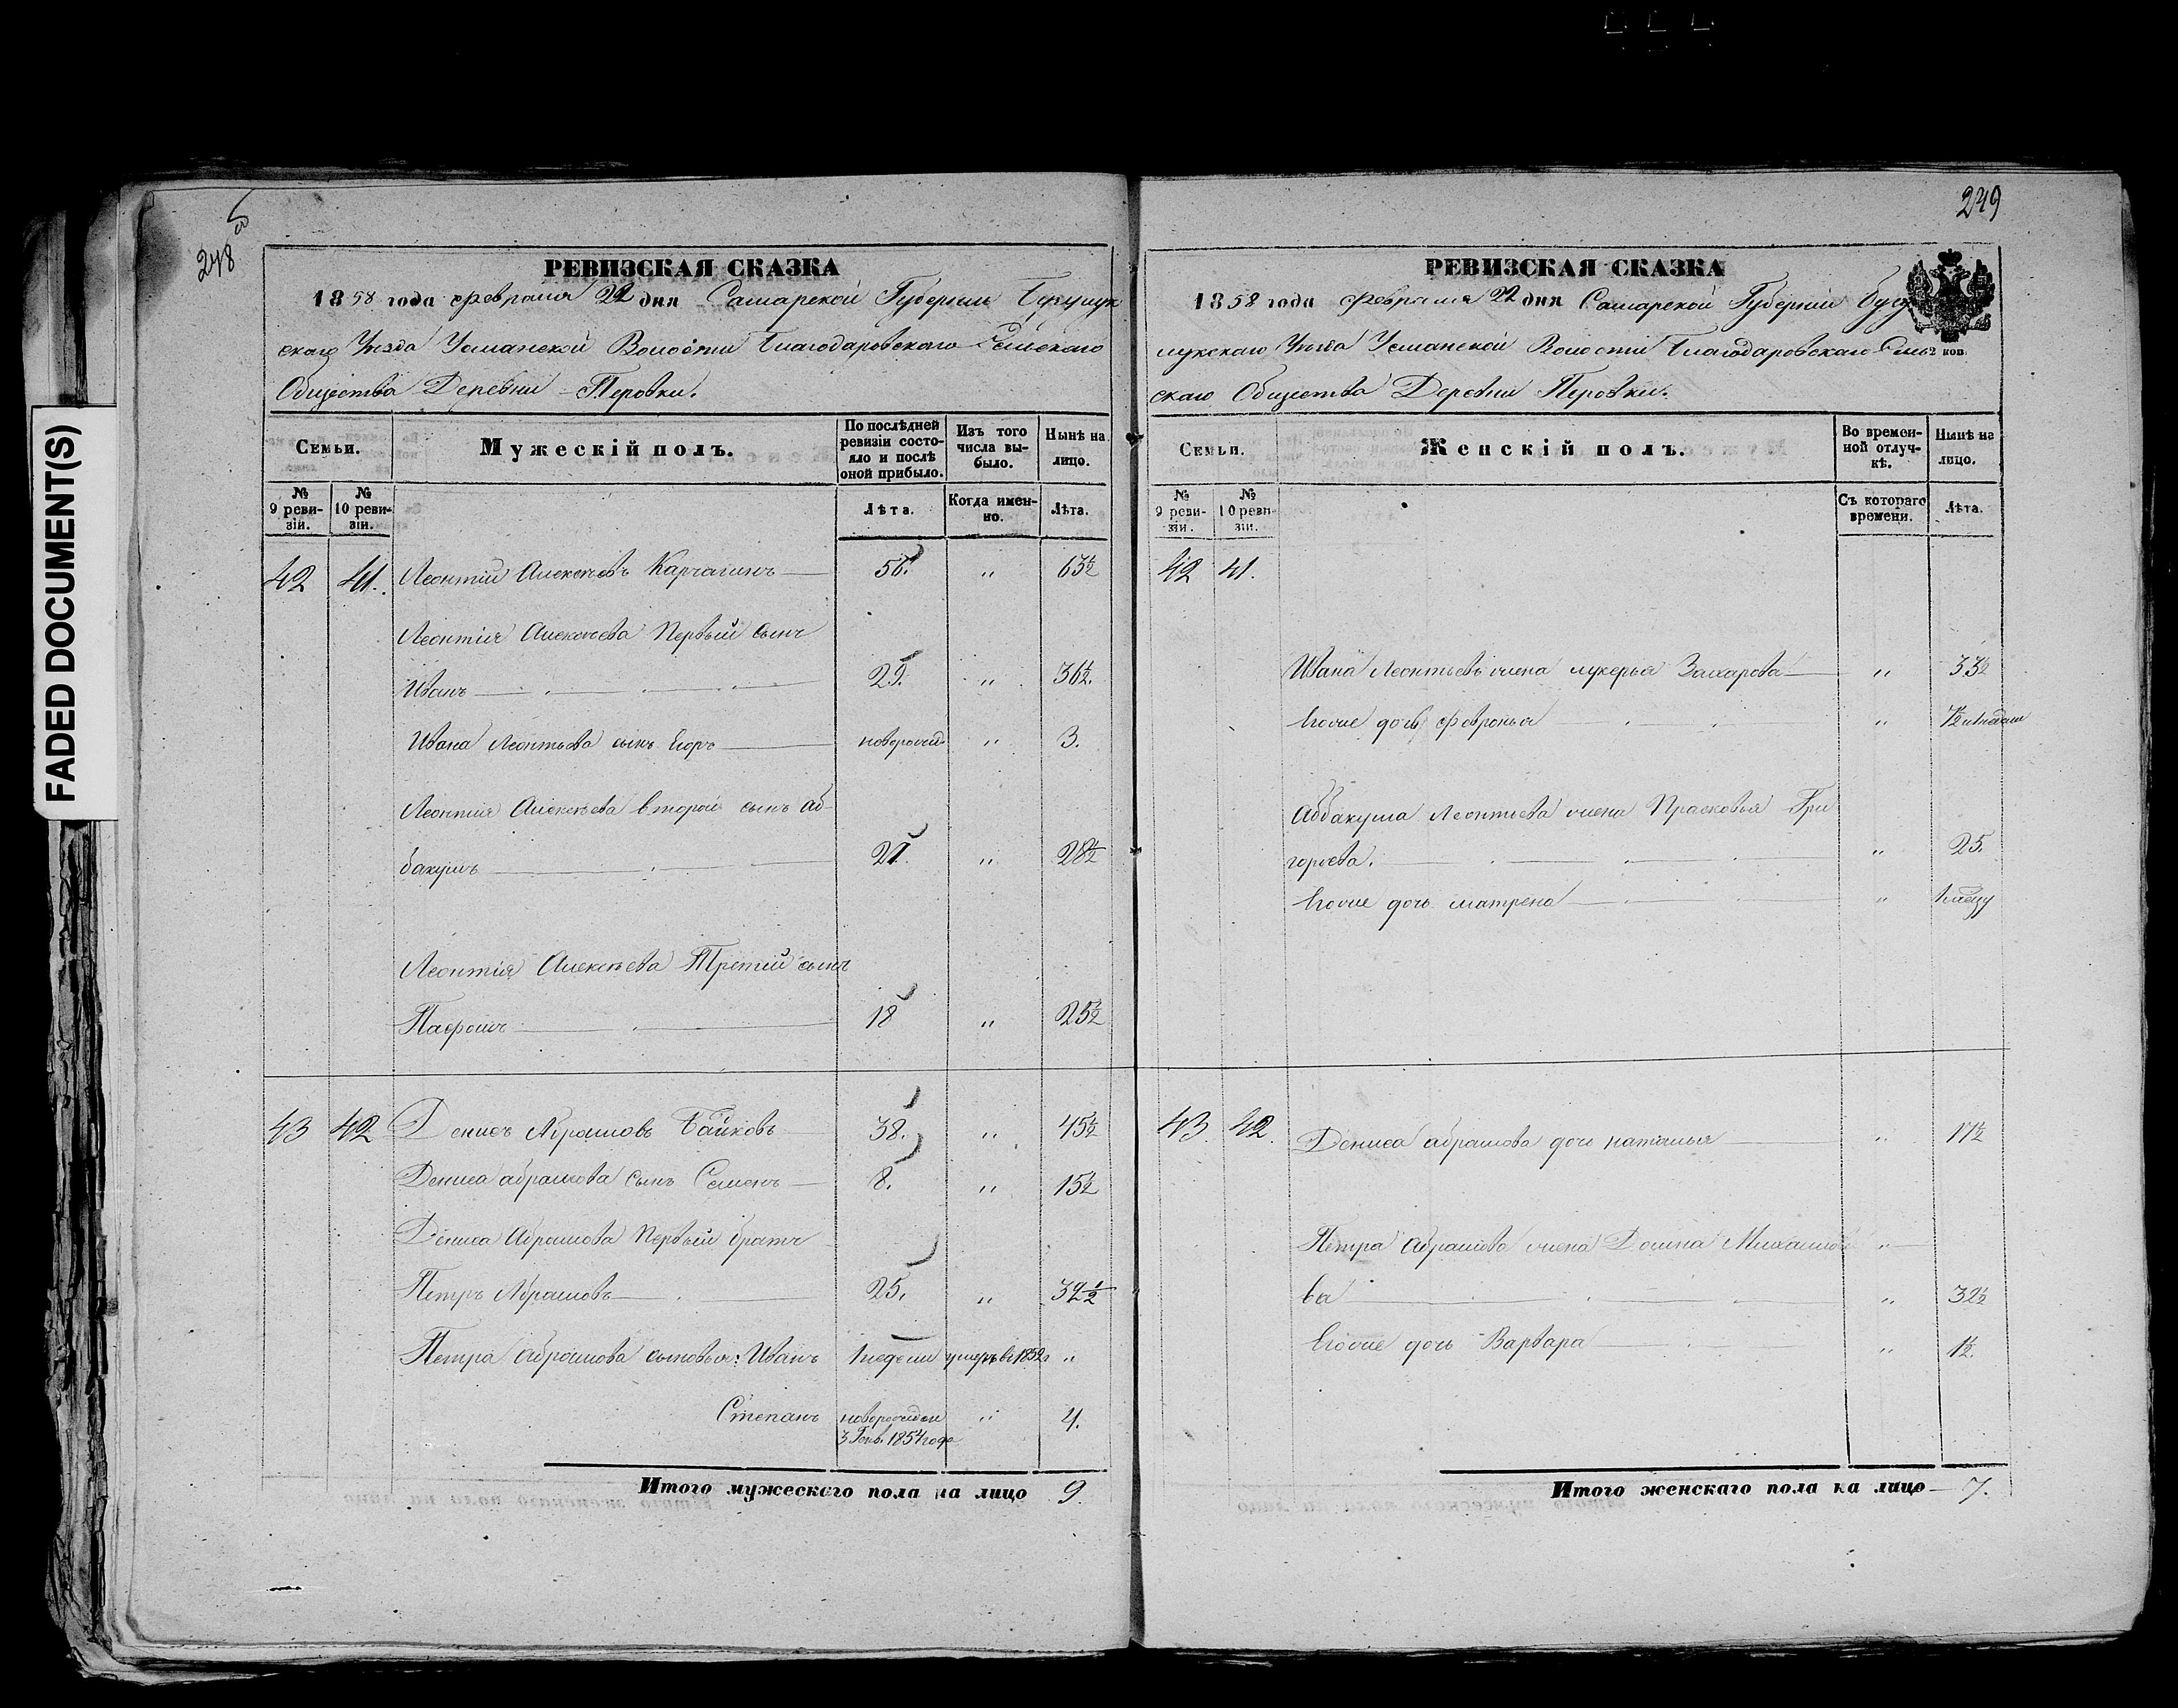 FADED DOCUMENT(S)
248 об
РЕВИЗСКАЯ СКАЗКА
1858 года Февраля 22 дня Самарской Губернии Бузулук
скаго Уѣзда Усманской Волости Благодаровскаго Сельскаго
Общества Деревни Перовки.
Семьи.
Мужескій полъ.
По послѣдней ревизіи состояло и послѣ оной прибыло.
Изъ того числа выбыло.
Нынѣ на лицо.
№ 9 ревизіи.
№ 10 ревизіи.
Лѣта.
Когда именно.
Лѣта.
42 41. Леонтій Алексѣевъ Карчагинъ 56. " 63½
Леонтія Алексѣева Первый сынъ
Иванъ 29. " 36½.
Ивана Леонтьева сынъ Егоръ новорожд " 3.
Леонтія Алексѣева второй сынъ Аб-
бакумъ 21. " 28½
Леонтія Алексѣева Третій сынъ
18 " 25½
43 42 Денисъ Абрамовъ Байковъ 38. " 45½
Дениса абрамова сынъ Семенъ 8. " 15½
Дениса Абрамова Первый братъ
Петръ Абрамовъ 25. " 32½
Петра Абрамова сыновья: Иванъ 1 недели умеръ въ 1852 г "
Степанъ новорожден " 4.
3 Генв. 1854 года
Итого мужескаго пола на лицо 9.
249
РЕВИЗСКАЯ СКАЗКА
1858 года Февраля 22 дня Самарской Губерніи Бузу
лукскаго Уѣзда Усманской Волости Благодаровскаго Сель
2 коп.
скаго Общества Деревни Перовки.
Семьи.
Женскій полъ.
Во временной отлучкѣ.
Нынѣ на лицо.
№ 9 ревизіи.
№ 10 ревизіи.
Съ котораго времени.
Лѣта.
42 41.
Ивана Леонтьевъ жена лукерья Захарова " 33½
Егоже дочь Февронья "
Аббакума Леонтьева жена Прасковья Гри
горьева. " 25.
Егоже дочь матрена "
43. 42. Дениса абрамова дочь наталья " 17½
Петра Абрамова жена Домна Михайло "
ва " 32½
Егоже дочь Варвара " 1½.
Итого женскаго пола на лицо 7.